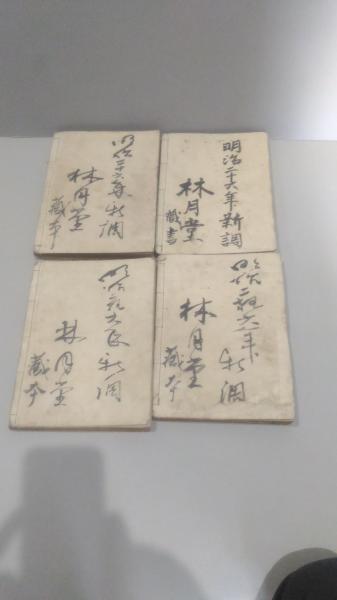 明治二十六年新調
林月堂
藏書
明治二十六年新調
林月堂
藏本
明治二拾六年新調
林月堂
藏本
明治二十六年新調
林月堂
藏本